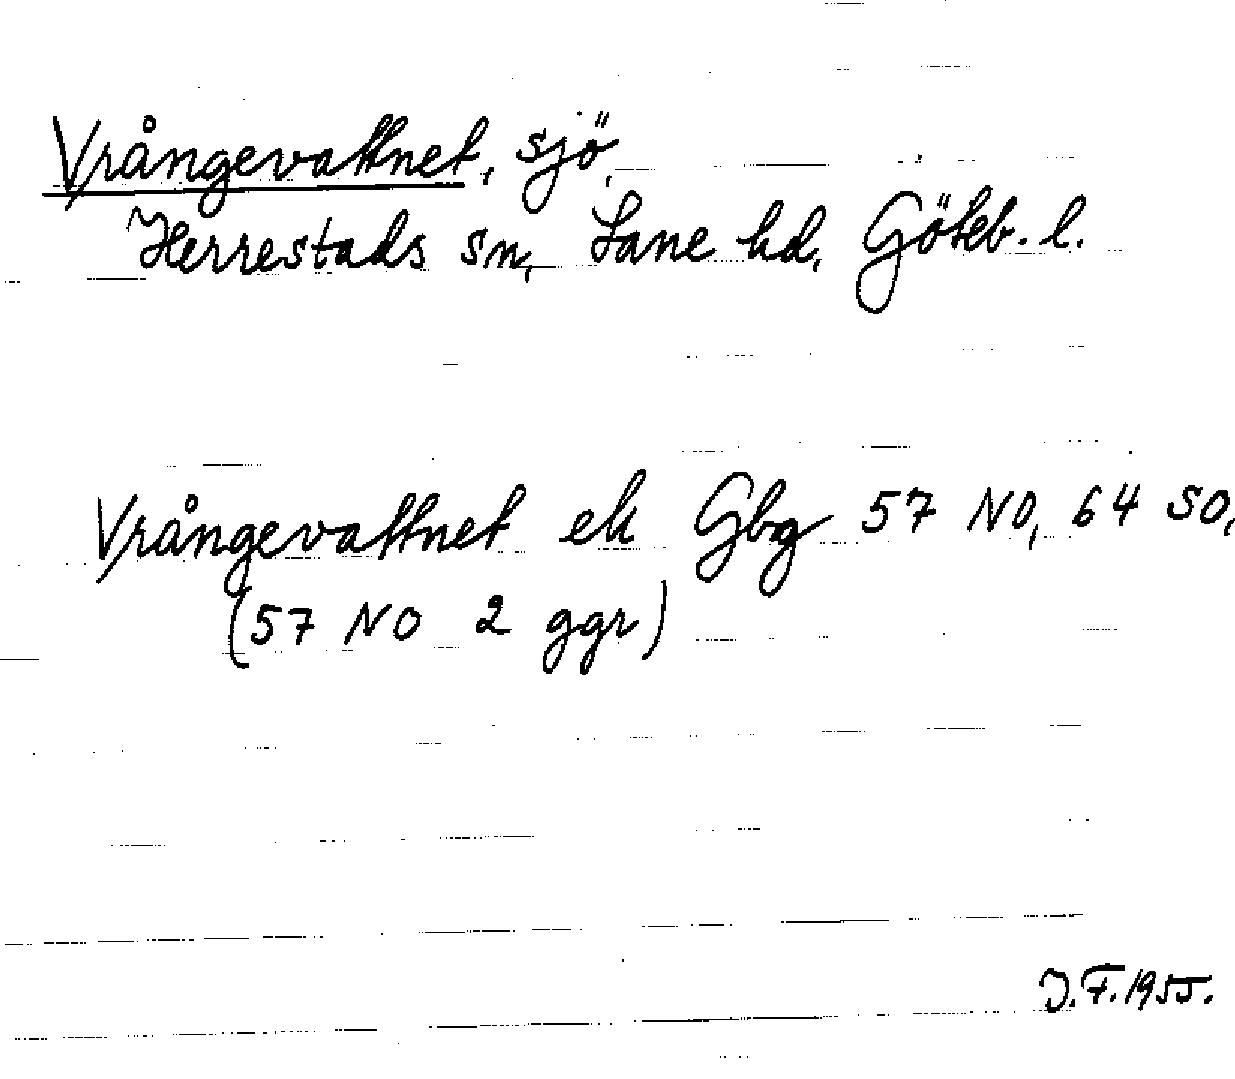 Vrångevattnet, sjö,
Herrestads sn, Lane hd, Göteb. l.
Vrångevattnet ek Gbg 57 NO, 64 SO,
(57 NO 2 ggr)
J.F. 1955.